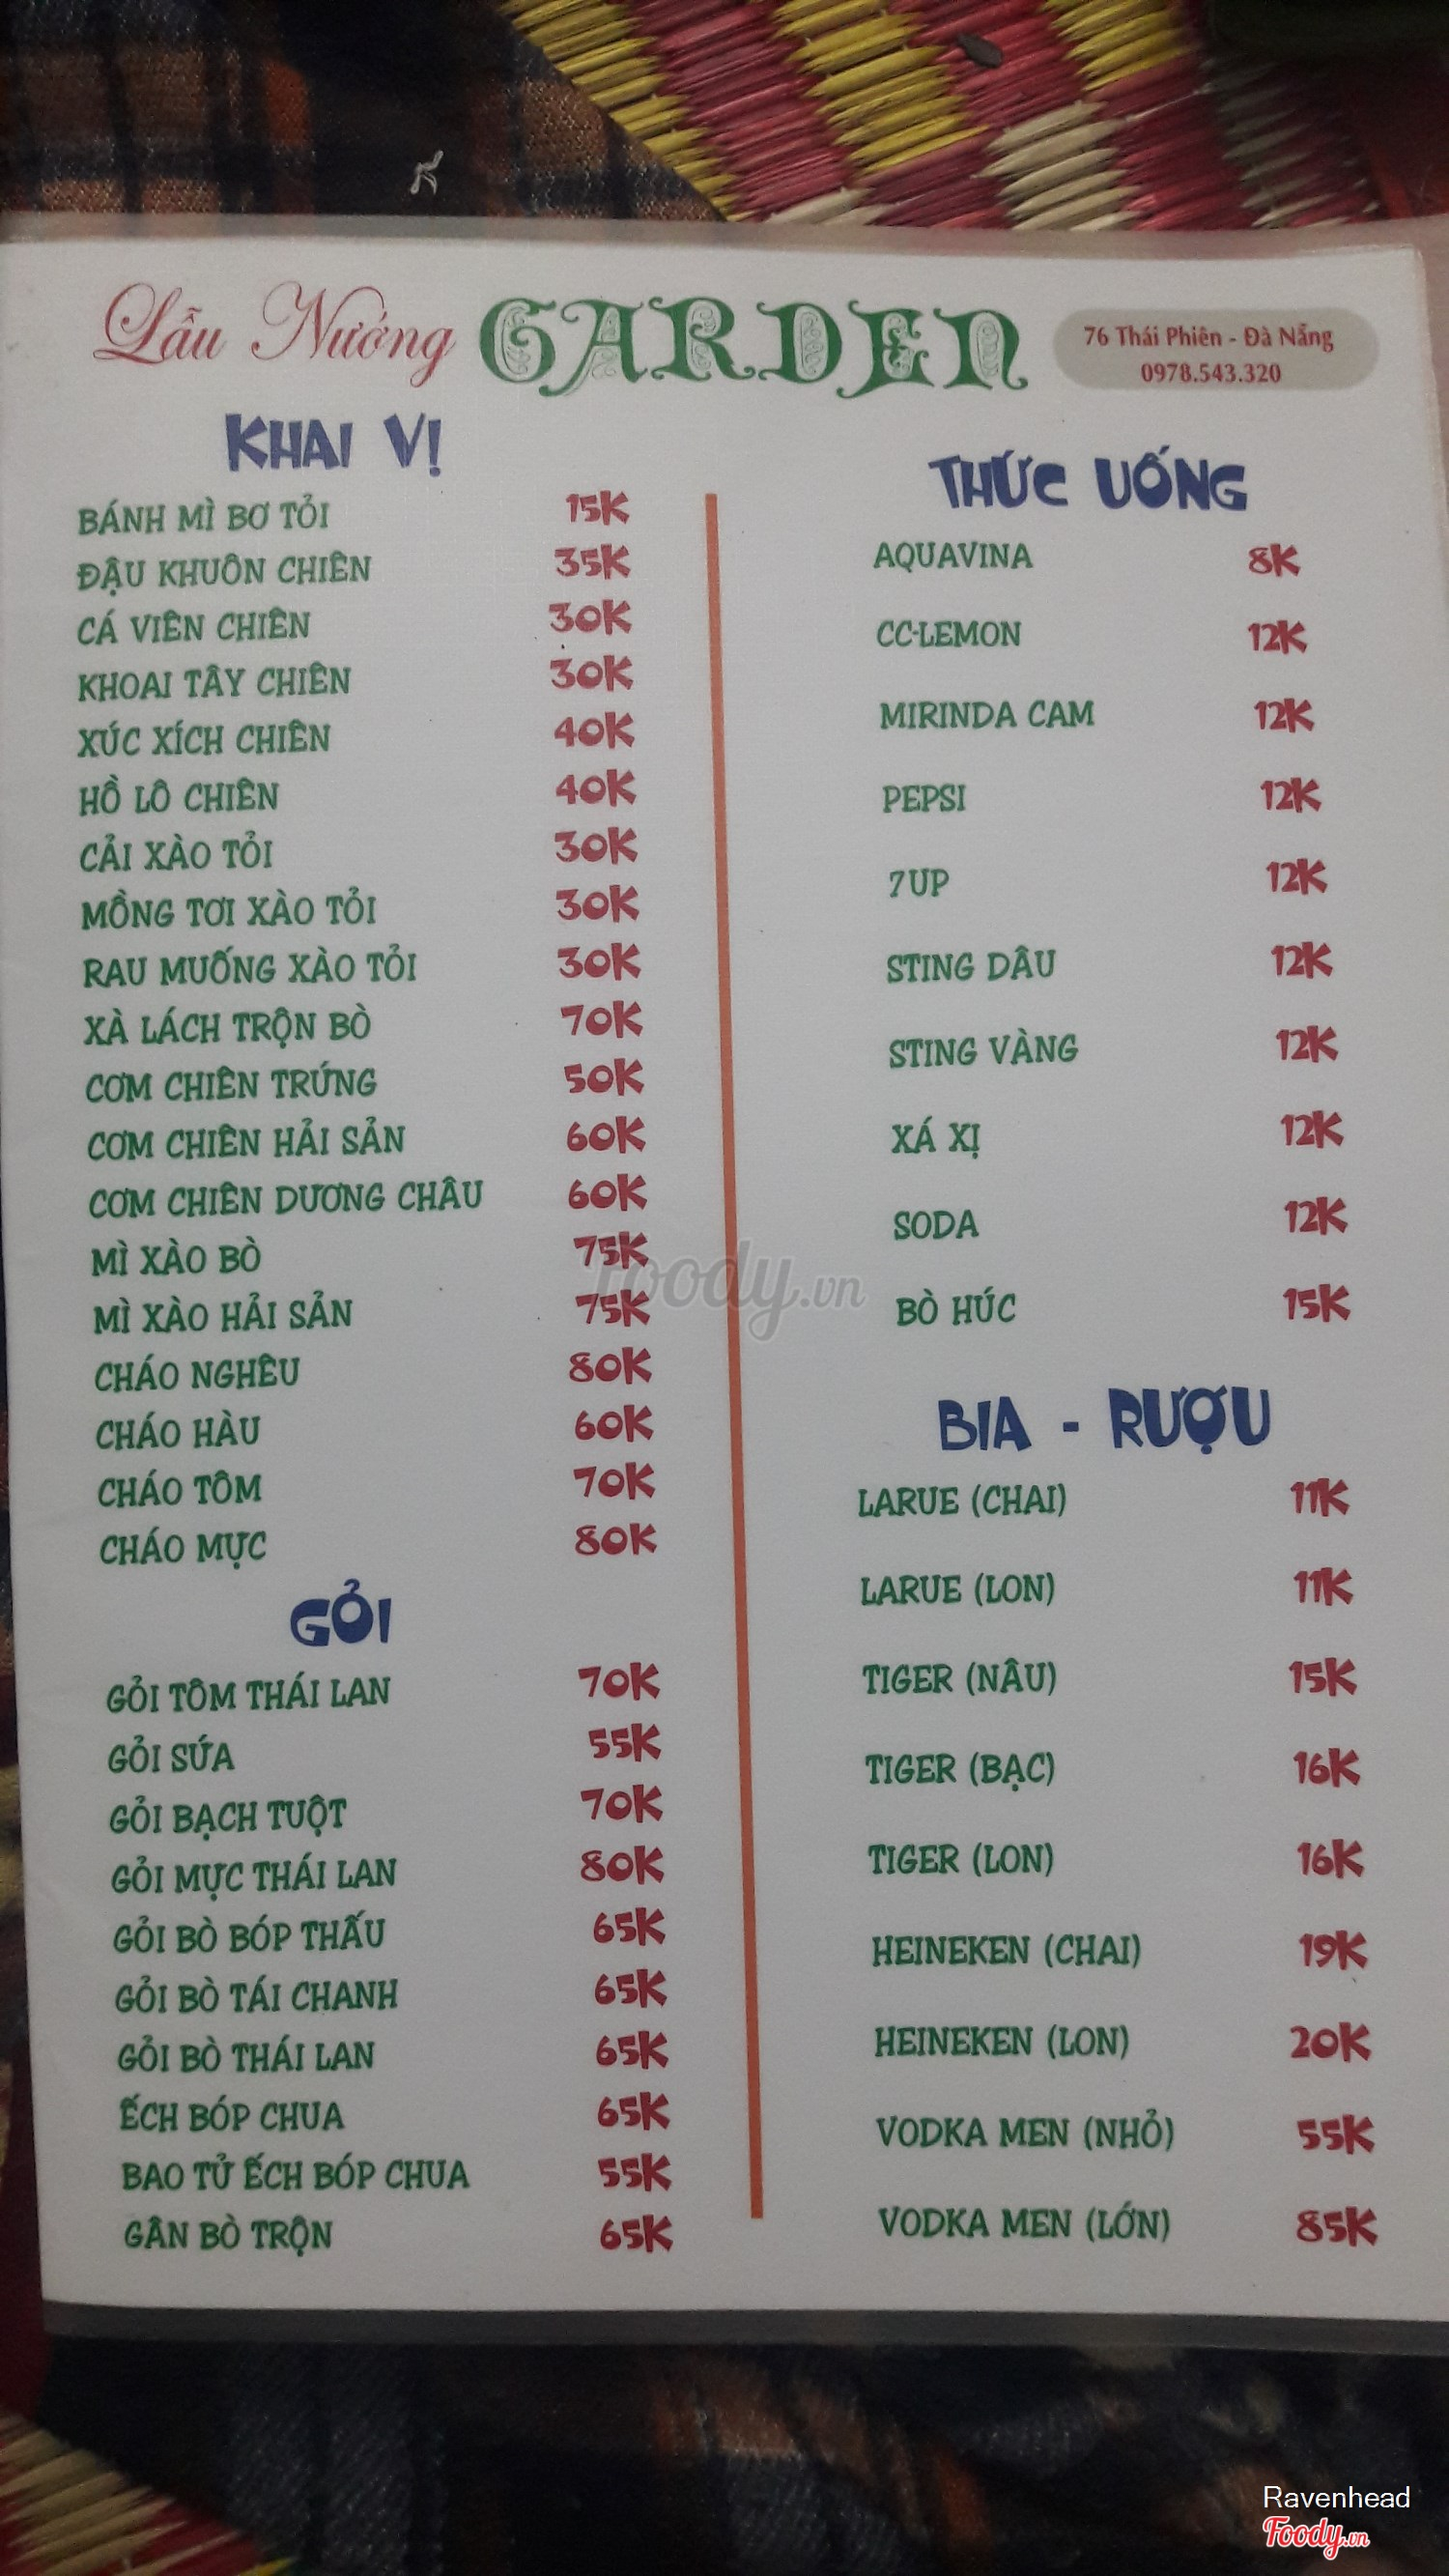 Lẩu Nướng GARDEN
76 Thái Phiên - Đà Nẵng
0978.543.320
KHAI VỊ
BÁNH MÌ BƠ TỎI 15K
ĐẬU KHUÔN CHIÊN 35K
CÁ VIÊN CHIÊN 30K
KHOAI TÂY CHIÊN 30K
XÚC XÍCH CHIÊN 40K
HỒ LÔ CHIÊN 40K
CẢI XÀO TỎI 30K
MỒNG TƠI XÀO TỎI 30K
RAU MUỐNG XÀO TỎI 30K
XÀ LÁCH TRỘN BÒ 70K
CƠM CHIÊN TRỨNG 50K
CƠM CHIÊN HẢI SẢN 60K
CƠM CHIÊN DƯƠNG CHÂU 60K
MÌ XÀO BÒ 75K
MÌ XÀO HẢI SẢN 75K
CHÁO NGHÊU 80K
CHÁO HÀU 60K
CHÁO TÔM 70K
CHÁO MỰC 80K
GỎI
GỎI TÔM THÁI LAN 70K
GỎI SỨA 55K
GỎI BẠCH TUỘT 70K
GỎI MỰC THÁI LAN 80K
GỎI BÒ BÓP THẤU 65K
GỎI BÒ TÁI CHANH 65K
GỎI BÒ THÁI LAN 65K
ẾCH BÓP CHUA 65K
BAO TỬ ẾCH BÓP CHUA 55K
GÂN BÒ TRỘN 65K
THỨC UỐNG
AQUAVINA 8K
CC-LEMON 12K
MIRINDA CAM 12K
PEPSI 12K
7UP 12K
STING DÂU 12K
STING VÀNG 12K
XÁ XỊ 12K
SODA 12K
BÒ HÚC 15K
BIA - RƯỢU
LARUE (CHAI) 11K
LARUE (LON) 11K
TIGER (NÂU) 15K
TIGER (BẠC) 16K
TIGER (LON) 16K
HEINEKEN (CHAI) 19K
HEINEKEN (LON) 20K
VODKA MEN (NHỎ) 55K
VODKA MEN (LỚN) 85K
foody.vn
Ravenhead
Foody.vn